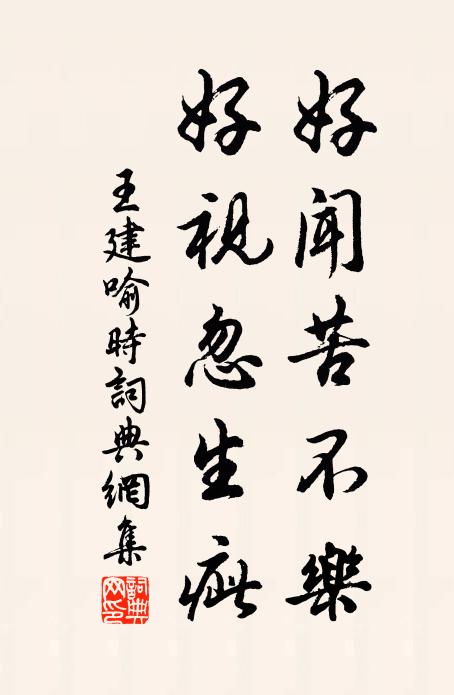 好聞苦不樂
好視忽生疵
王建喻時詞典網集
詞典網印